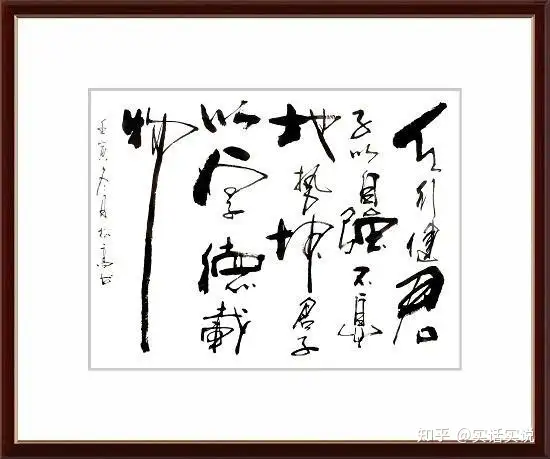 天行健君
子以自强不息
地势坤君子
以厚德載
物
壬寅冬月松书
知乎 @实话实说